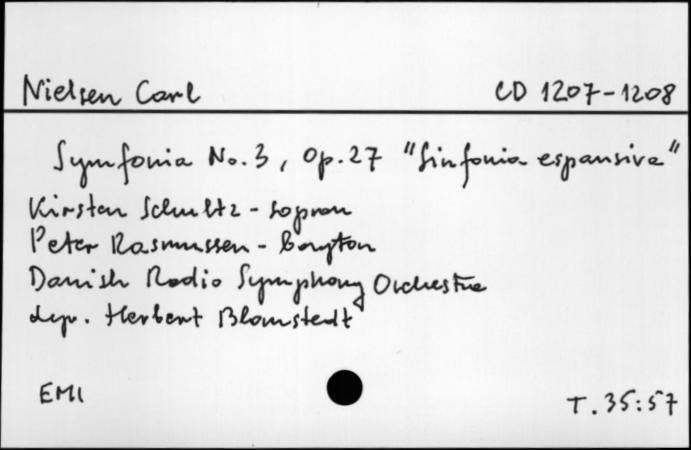 Nielsen Carl CD 1207-1208
Symfonia No.3, Op.27 "Sinfonia espansiva"
Kirsten Schultz - sopran
Peter Rasmussen - baryton
Danish Radio Symphony Orchestra
dyr. Herbert Blomstedt
EMI T. 35:57